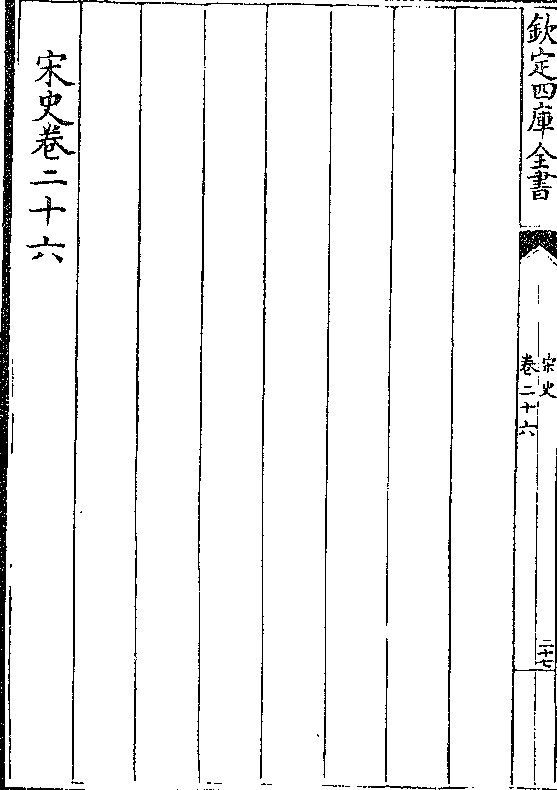 欽定四庫全書
宋史
卷二十六
二十七
宋史卷二十六